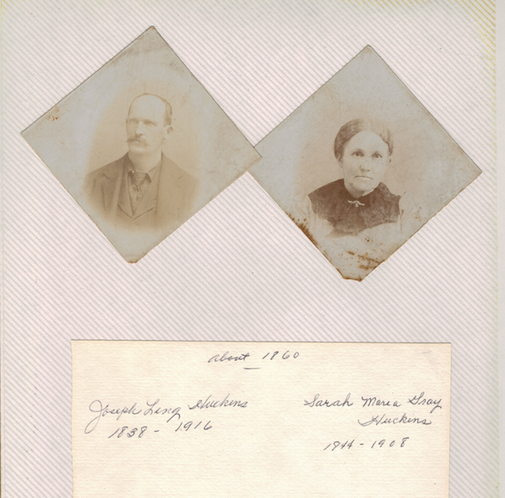 about 1860
Joseph Ling Huckins
1838 - 1916
Sarah Maria Gray
Huckins
1844 - 1908